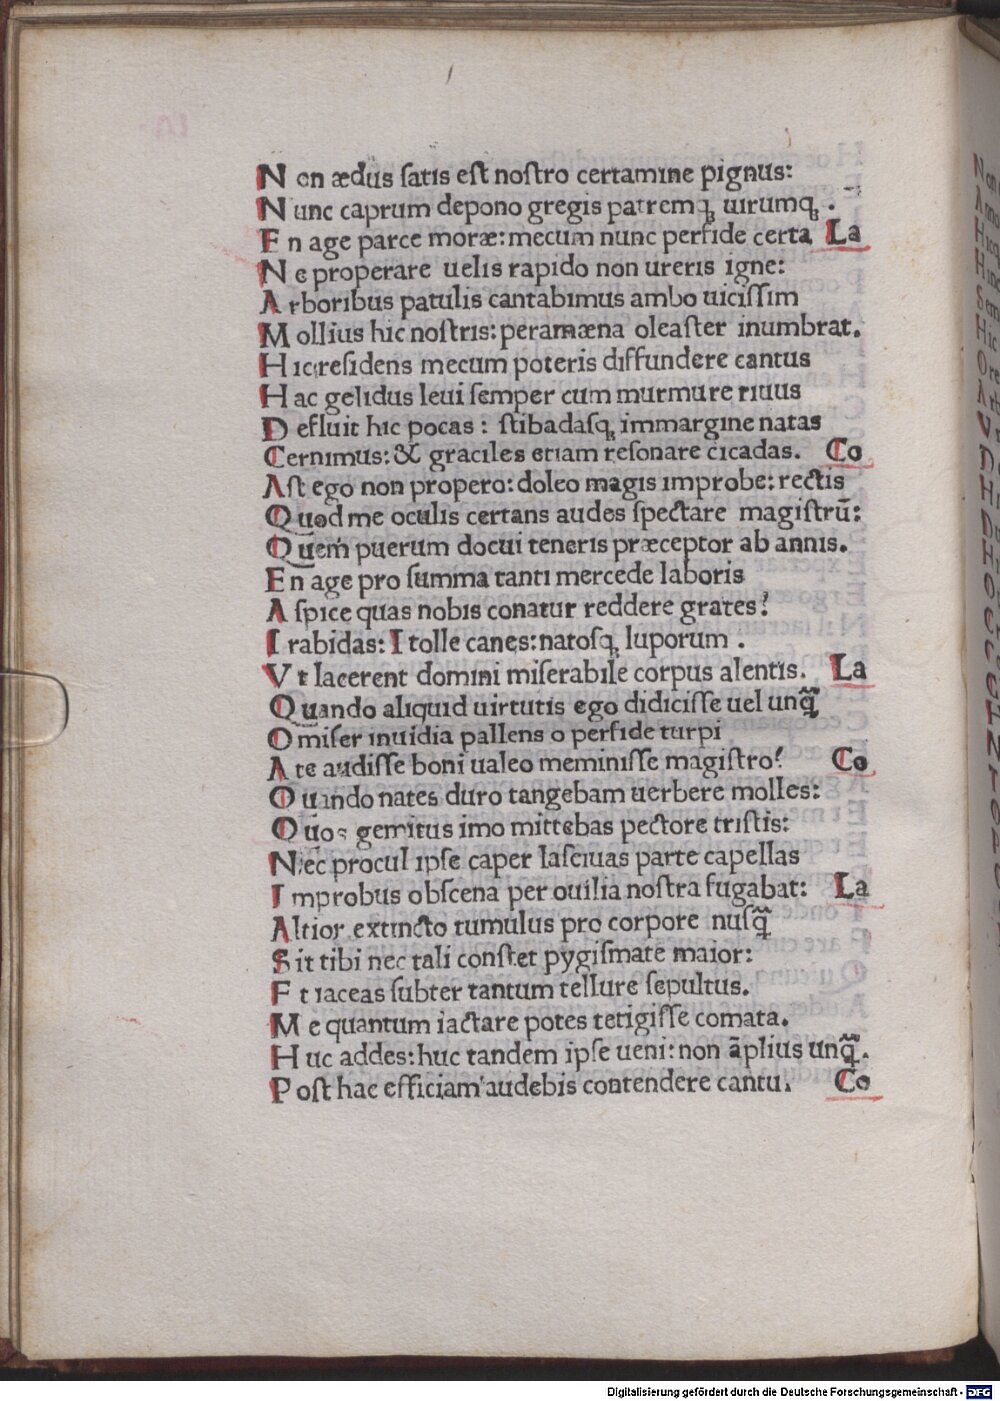 N on ædus satis est nostro certamine pignus:
N unc caprum depono gregis patremq; uirumq;.
E n age parce moræ: mecum nunc perfide certa La
N e properare uelis rapido non ureris igne:
A rboribus patulis cantabimus ambo uicissim
M ollius hic nostris: peramæna oleaster inumbrat.
H ic residens mecum poteris diffundere cantus
H ac gelidus leui semper cum murmure riuus
D efluit hic pocas: stibadasq; immargine natas
Cernimus: & graciles etiam resonare cicadas. Co
Ast ego non propero: doleo magis improbe: rectis
Quod me oculis certans audes spectare magistrū:
Quem puerum docui teneris præceptor ab annis.
E n age pro summa tanti mercede laboris
A spice quas nobis conatur reddere grates?
I rabidas: I tolle canes: natosq; luporum.
V t lacerent domini miserabile corpus alentis. La
Quando aliquid uirtutis ego didicisse uel unq̃
O miser inuidia pallens o perfide turpi
A te audisse boni ualeo meminisse magistro? Co
Quando nates duro tangebam uerbere molles:
Quos gemitus imo mittebas pectore tristis:
Nec procul ipse caper lasciuas parte capellas
I mprobus obscena per ouilia nostra fugabat: La
Altior extincto tumulus pro corpore nusq̃
S it tibi nec tali constet pygismate maior:
E t iaceas subter tantum tellure sepultus.
M e quantum iactare potes tetigisse comata.
H uc addes: huc tandem ipse ueni: non āplius unq̃.
P ost hae efficiam audebis contendere cantu. Co
Digitalisierung gefördert durch die Deutsche Forschungsgemeinschaft - DFG